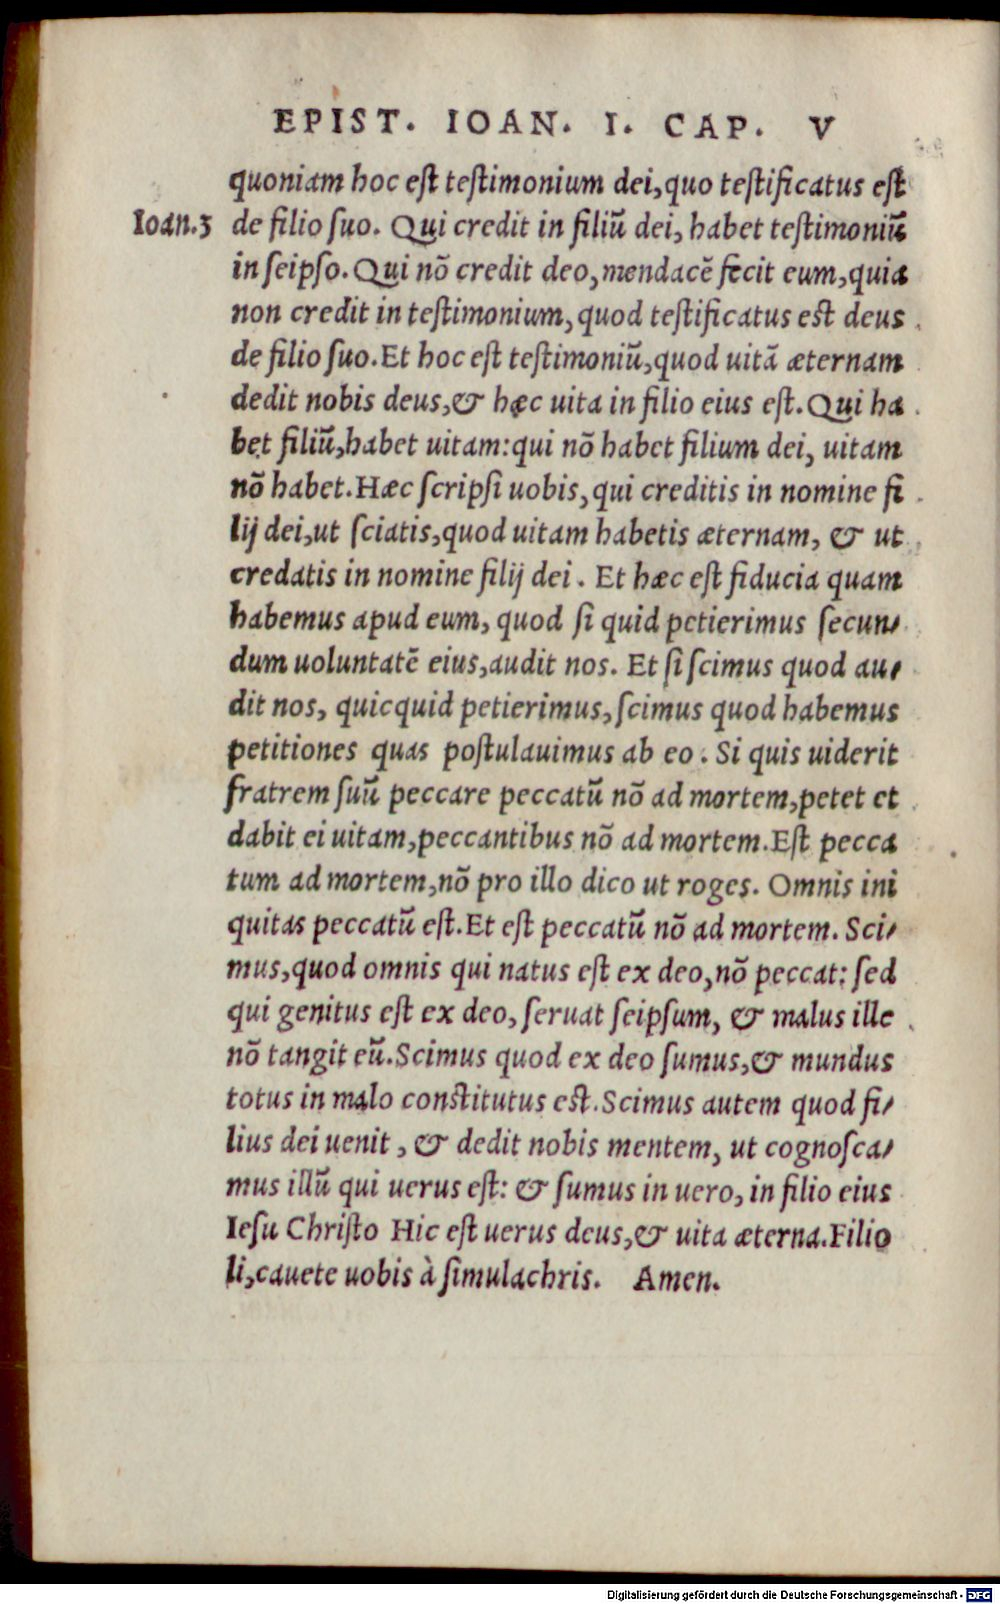 EPIST. IOAN. I. CAP. V
quoniam hoc eſt teſtimonium dei, quo teſtificatus eſt
Ioan.3 de filio ſuo. Qui credit in filiũ dei, habet teſtimoniũ
in ſeipſo. Qui nõ credit deo, mendacẽ fecit eum, quia
non credit in teſtimonium, quod teſtificatus eſt deus
de filio ſuo. Et hoc eſt teſtimoniũ, quod uitã æternam
dedit nobis deus, & hæc uita in filio eius eſt. Qui ha
bet filiũ, habet uitam: qui nõ habet filium dei, uitam
nõ habet. Hæc ſcripſi uobis, qui creditis in nomine fi
lij dei, ut ſciatis, quod uitam habetis æternam, & ut
credatis in nomine filij dei. Et hæc eſt fiducia quam
habemus apud eum, quod ſi quid petierimus ſecun-
dum uoluntatẽ eius, audit nos. Et ſi ſcimus quod au-
dit nos, quicquid petierimus, ſcimus quod habemus
petitiones quas poſtulauimus ab eo. Si quis uiderit
fratrem ſuũ peccare peccatũ nõ ad mortem, petet et
dabit ei uitam, peccantibus nõ ad mortem. Eſt pecca
tum ad mortem, nõ pro illo dico ut roges. Omnis ini
quitas peccatũ eſt. Et eſt peccatũ nõ ad mortem. Sci-
mus, quod omnis qui natus eſt ex deo, nõ peccat: ſed
qui genitus eſt ex deo, ſeruat ſeipſum, & malus ille
nõ tangit eũ. Scimus quod ex deo ſumus, & mundus
totus in malo conſtitutus eſt. Scimus autem quod fi-
lius dei uenit, & dedit nobis mentem, ut cognoſca-
mus illũ qui uerus eſt: & ſumus in uero, in filio eius
Ieſu Chriſto Hic eſt uerus deus, & uita æterna. Filio
li, cauete uobis à ſimulachris. Amen.
Digitalisierung gefördert durch die Deutsche Forschungsgemeinschaft - DFG